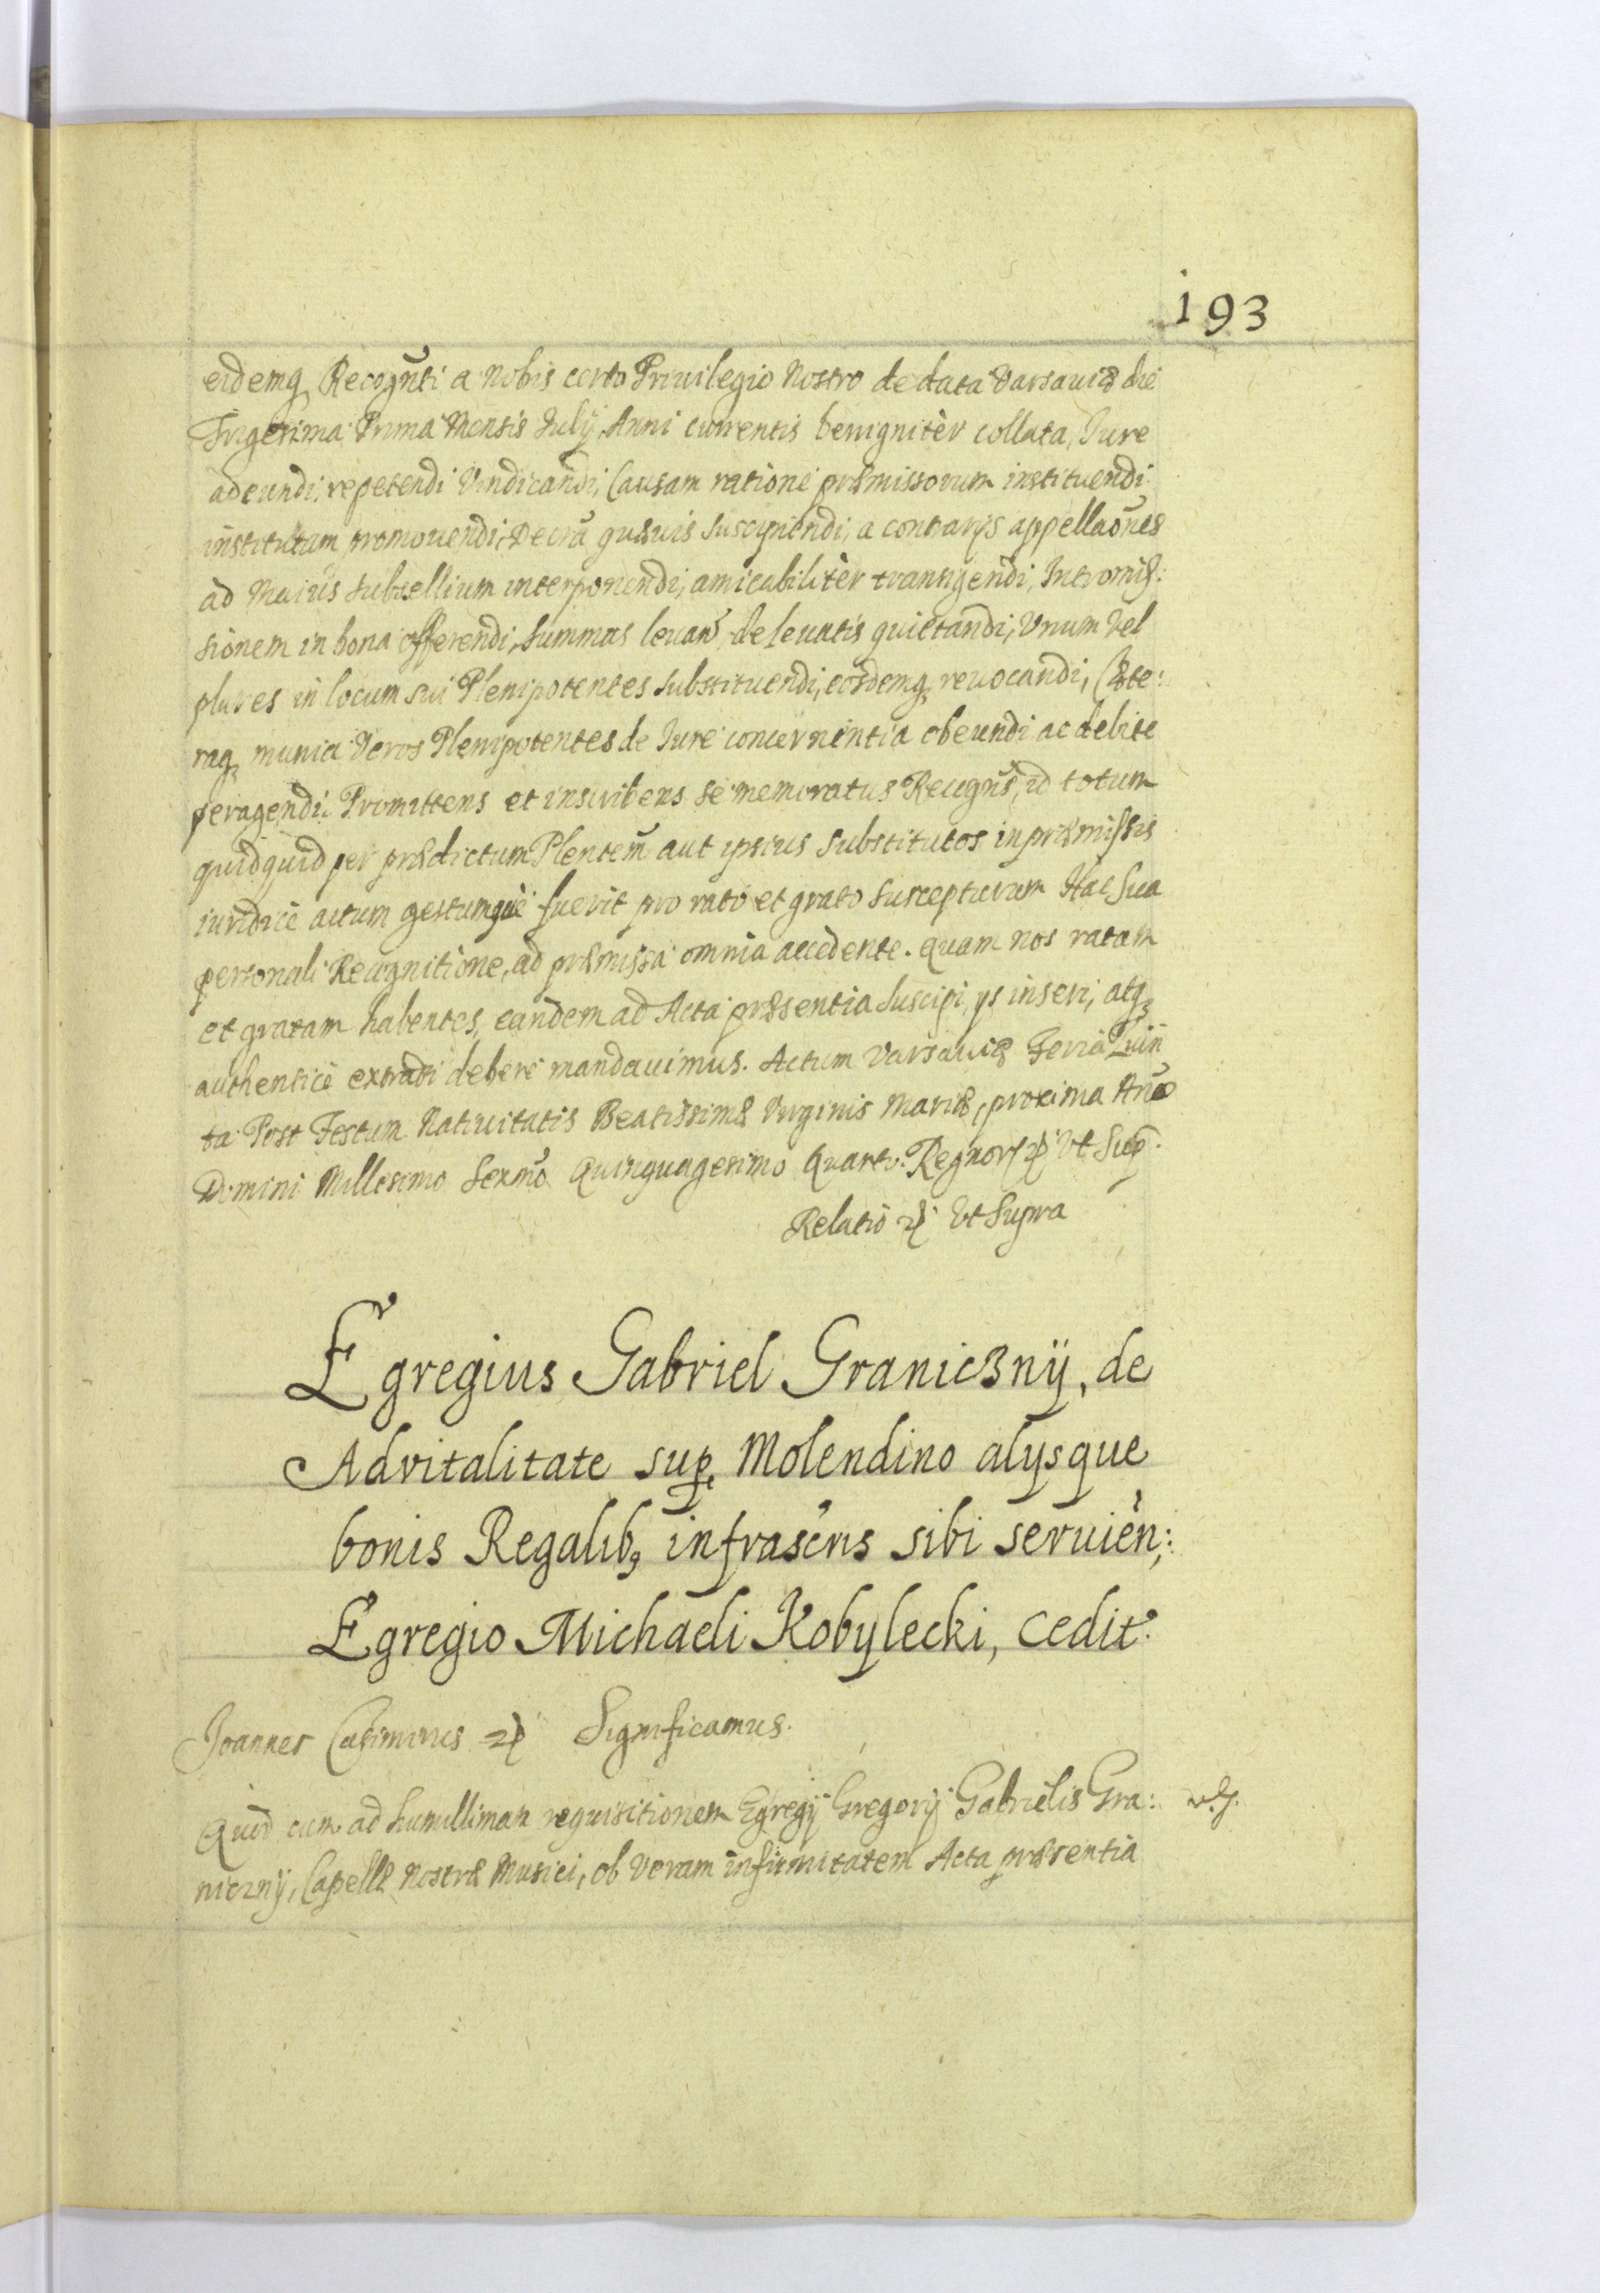 193
eidemq, Recogñti a Nobis certo Priuilegio Nostro de data Varsauiæ die
Trigesima Prima Mensis Julij, Anni currentis benignitèr collata, Jure
adeundi, repetendi Vindicandi, Causam ratione præmissorum instituendi
institutam promouendi, Decrã quæuis suscipiendi, a contrarijs appellaões
ad Maius subsellium interponendi, amicabilitèr transigendi, Intromis:
sionem in bona offerendi, Summas leuañ, de leuatis quietandi, Vnum Vel
plures in locum sui Plenipotentes substituendi, eosdemq, reuocandi, Cæte:
raq, munia Veros Plenipotentes de Jure concernentia obeundi ac debite
peragendi. Promittens et inscribens se memoratus Recogñs, id totum
quidquid per prædictum Plentem̃ aut ipsius Substitutos in præmissis
iuridicè actum gestumquè fuerit pro rato et grato suscepturum Hac sua
personali Recognitione, ad præmissa omnia accedente. Quam nos ratam
et gratam habentes, eandem ad Acta præsentia suscipi, ijs inseri, atq,
authenticè extradi debere mandauimus. Actum Varsauiæ Feriâ Quin
ta Post Festum Natiuitatis Beatissimæ Virginis Mariæ, proxima Año
Domini Millesimo Sexmõ Quinquagesimo Quarto. Regnorz Vt Sup̃.
Relatio Vt Supra
Egregius Gabriel Granicznÿ, de
Advitalitate sup, Molendino alijsque
bonis Regalib, infrascr̃is sibi seruieǹ:
Egregio Michaeli Kobylecki, cedit.
Joannes Casimirus Significamus.
Quod cum ad humillimam requisitionem Egregij Gregorij Gabrielis Gra:
nicznÿ, Capellæ Nostræ Musici, ob Veram infirmitatem Acta præsentia